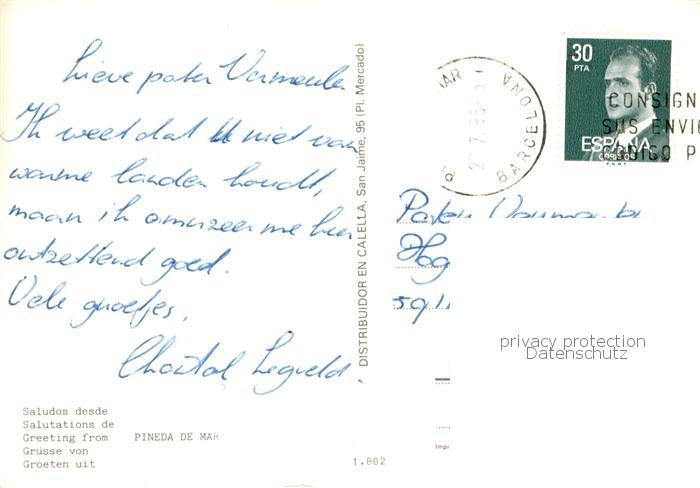 Lieve pater Vermeulen
Ik weet dat U niet van
warme landen houdt,
maar ik amuzeer me hier
ontzettend goed.
Vele groetjes,
Chantal
Saludos desde
Salutations de
Greeting from PINEDA DE MAR
Grüsse von
Groeten uit
1.882
DISTRIBUIDOR EN CALELLA, San Jaime, 95 (Pl. Mercado)
MAR
BARCELONA
30
PTA
ESPAÑA
CORREOS
F.N.M.T.
CONSIGN
SUS ENVI
CODIGO P
Pater
Hog
591
privacy protection
Datenschutz